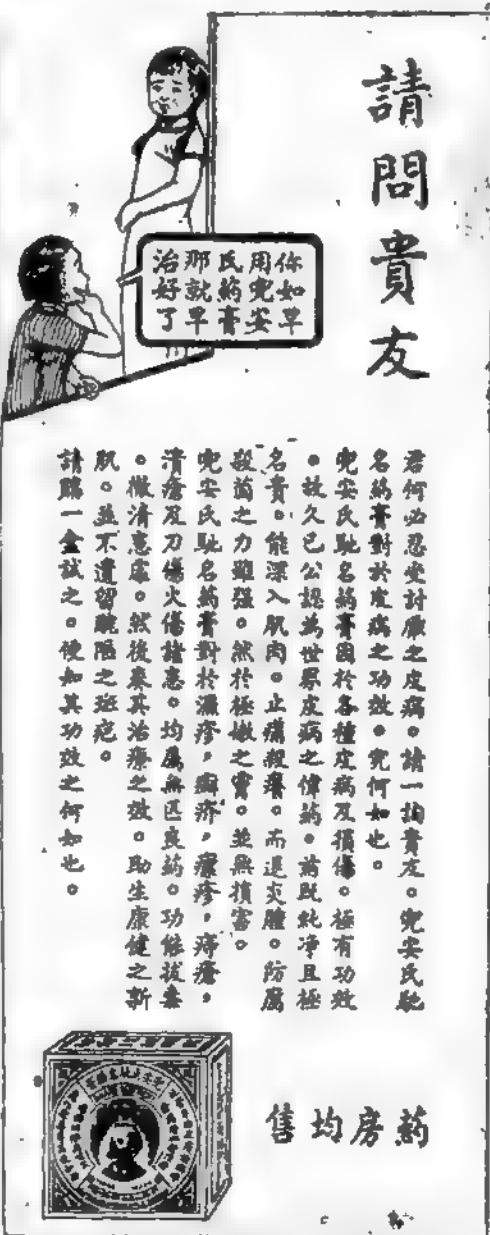 請問貴友
你如早
用兜安
氏葯膏
那就早
治好了
君何必忍受討厭之皮痛。請一詢貴友。兜安氏馳
名葯膏對於皮病之功效。究何如也。
兜安氏馳名葯膏因於各種皮病及損傷。極有功效
。故久已公認為世界皮病之偉葯。葯既純凈且極
名貴。能深入肌肉。止痛殺癢。而退炎腫。防腐
殺菌之力雖强。然於極嫩之膚。並無損害。
兜安氏馳名葯膏對於濕疹，癬疥，瘰疹，痔瘡，
潰瘡及刀傷火傷諸患。均屬無匹良葯。功能拔毒
。撤清患處。然後奏其治療之效。助生康健之新
肌。並不遺留醜陋之斑疤。
請購一盒試之。便知其功效之何如也。
葯房均售